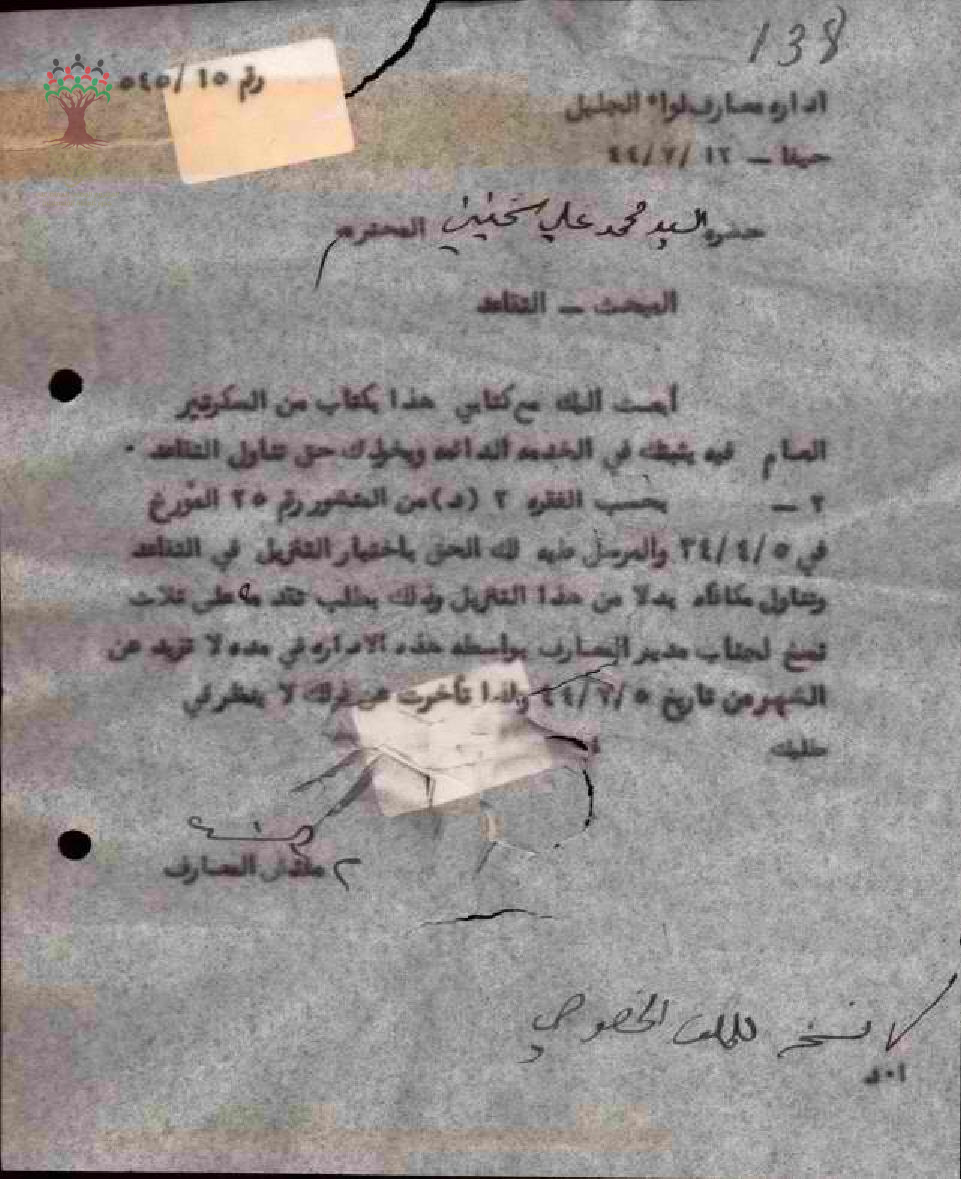 138
رقم ١٥ /٥٤٥
اداره معارف لواء الجليل
حيفا — ١٢ /٧ /٤٤
حضره السيد محمد علي المحترم
المبحث — التقاعد
أبعث اليك مع كتابي هذا بكتاب من السكرتير
العام فيه يثبتك في الخدمه الدائمه ويخولك حق تناول التقاعد ٠
٢ — بحسب الفقره ٢ (د) من المنشور رقم ٢٥ المؤرخ
في ٣٤/٤/٥ والمرسل طيه لك الحق باختيار التنزيل في التقاعد
وتناول مكافأه بدلا من هذا التنزيل وذلك بطلب تقدمه على ثلاث
نسخ لجناب مدير المعارف بواسطه هذه الاداره في مده لا تزيد عن
الشهر من تاريخ ٤٤/٧/٥ واذا تأخرت عن ذلك لا ينظر في
طلبك
مفتش المعارف
نسخه للملف الخصوصي